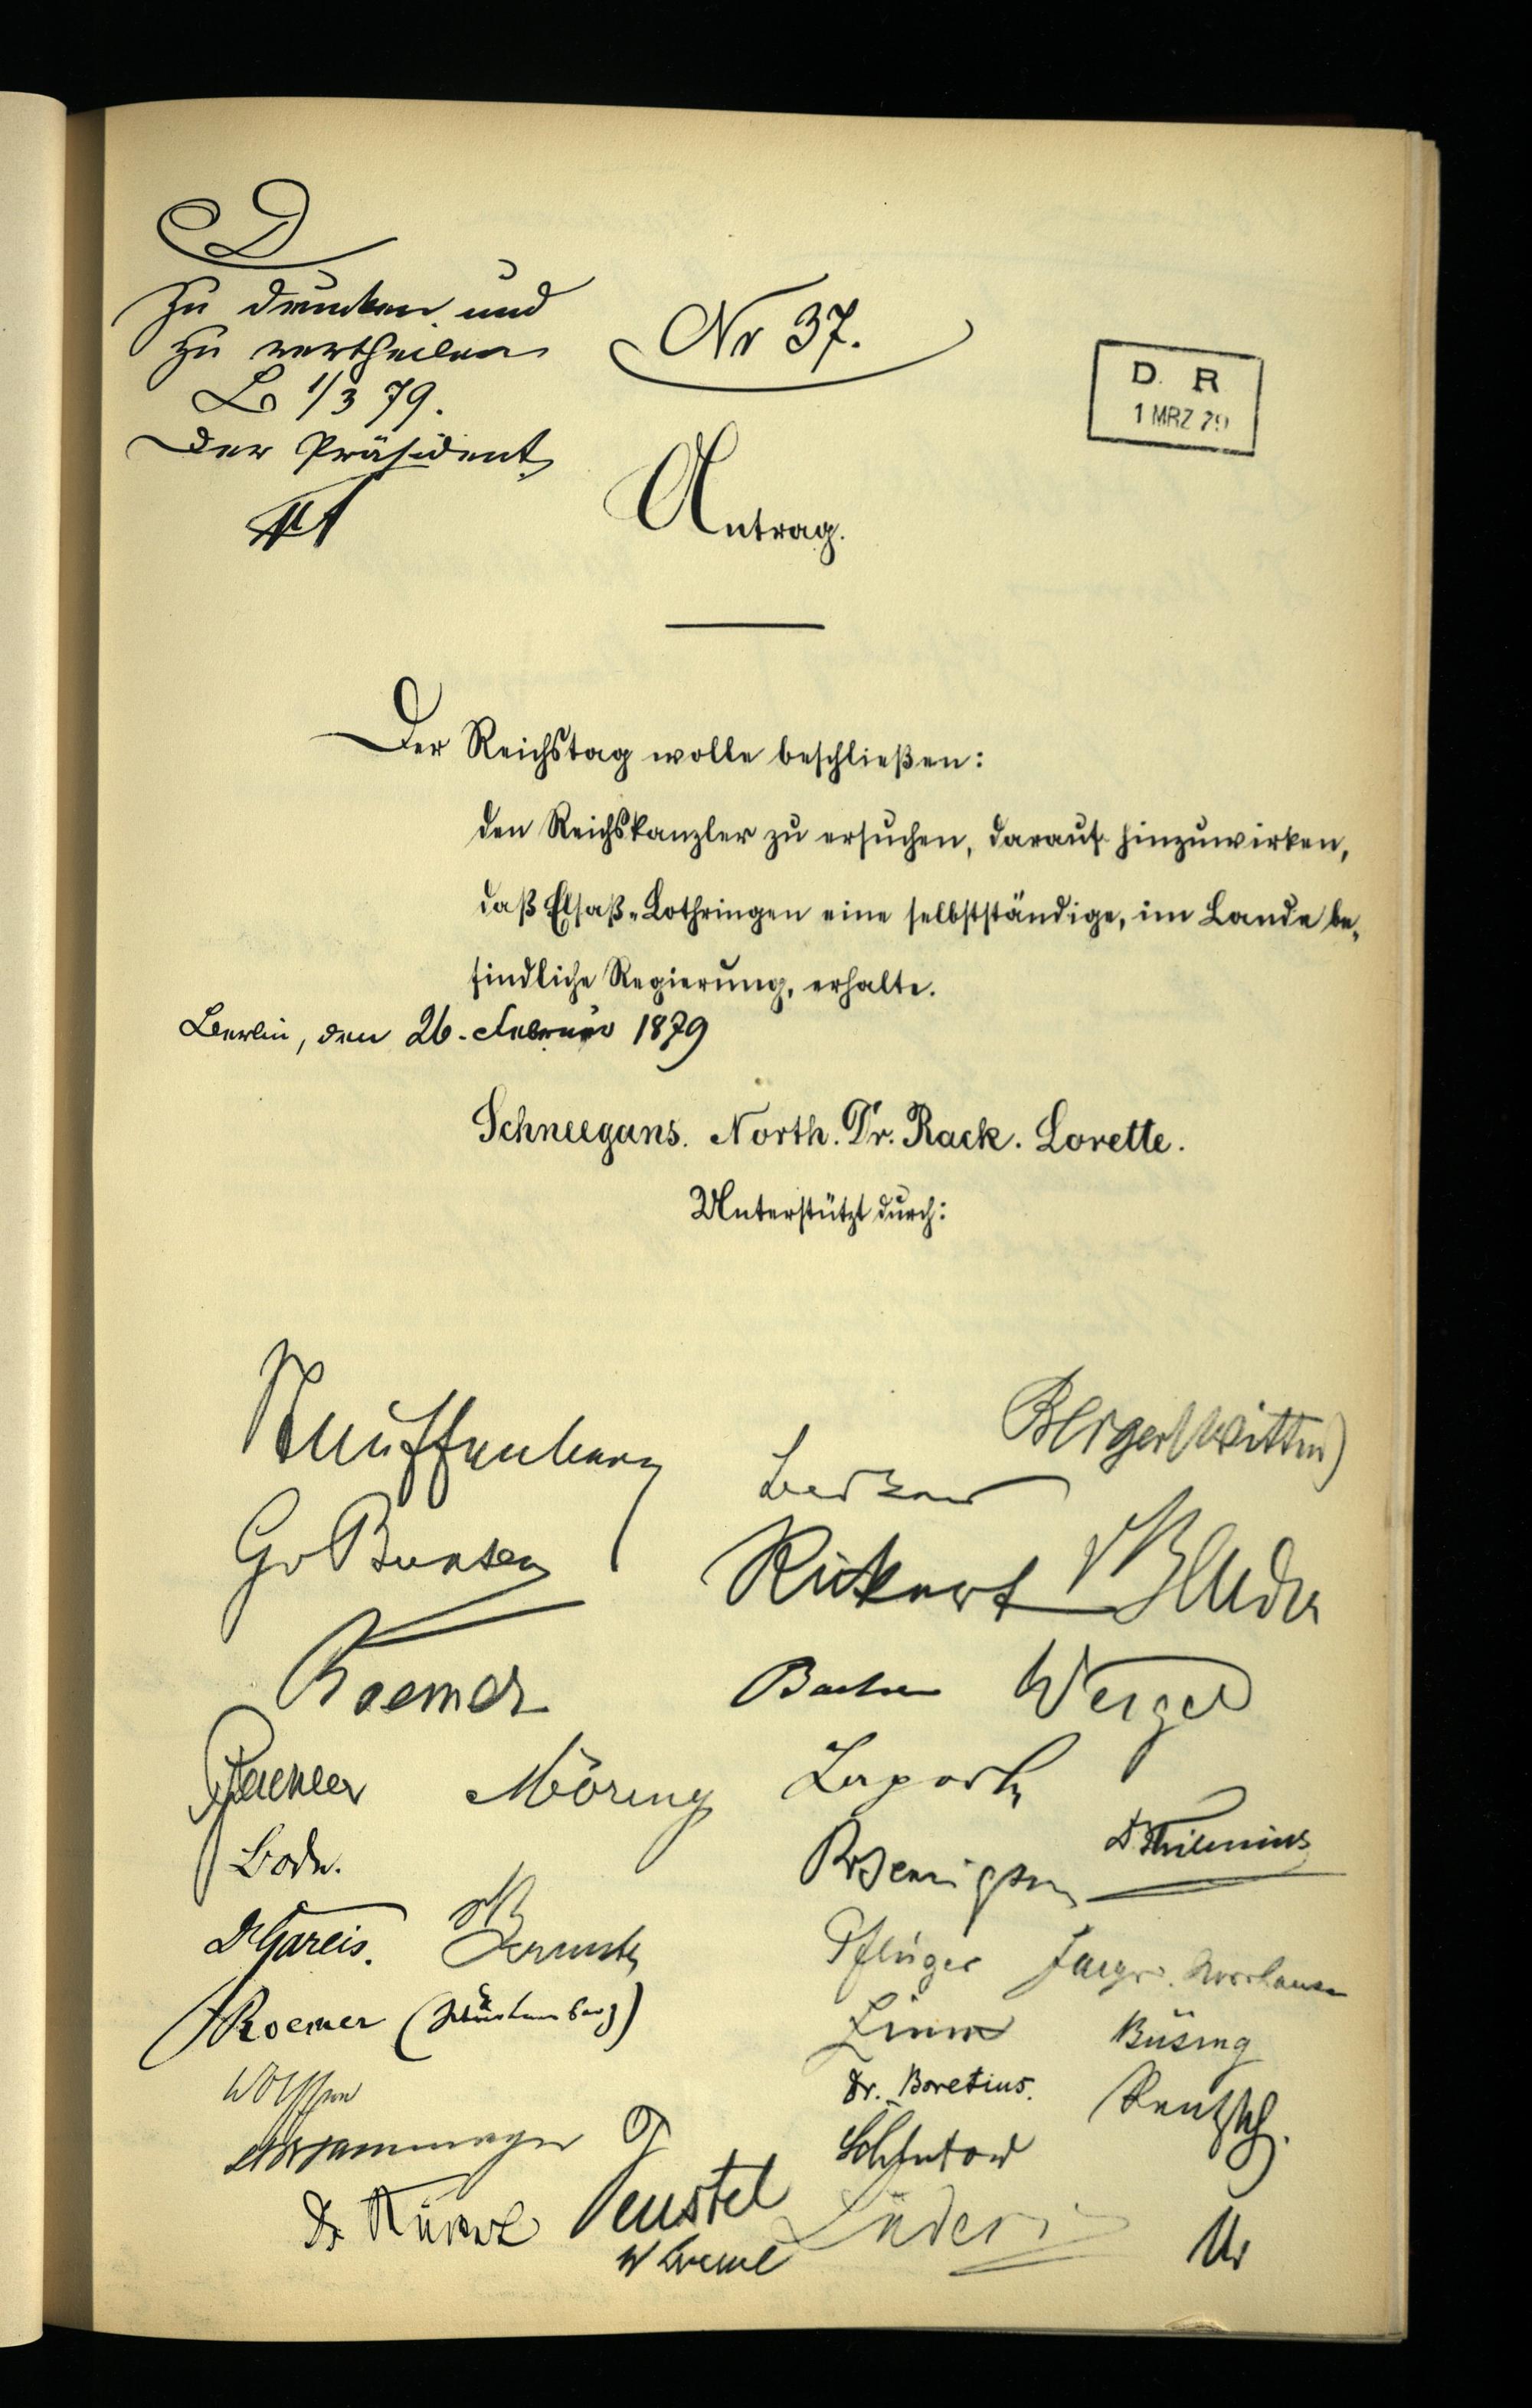 D
Zu drucken und
zu vertheilen
B 1/3 79.
Der Präsident
Nr 37.
D. R
1 MRZ 79
Antrag.
Der Reichstag wolle beschließen:
den Reichskanzler zu ersuchen, darauf hinzuwirken,
daß Elsaß-Lothringen eine selbstständige, im Lande be-
findliche Regierung, erhalte.
Berlin, den 26. Februar 1879
Schneegans. North. Dr. Rack. Lorette.
Unterstützt durch:
Stauffenberg
Berger (Witten)
GvBunsen
Rickert
Roemer
Bamberger
Weigel
Möring
Laporte
Bode.
RvBennigsen
Dr Thilenius
Dr Gareis.
Pflüger
Roemer (Württemberg)
Zinn
Büsing
Wolffson
Dr. Boretius.
Rentzsch.
Schlutow
Feustel
Lüders